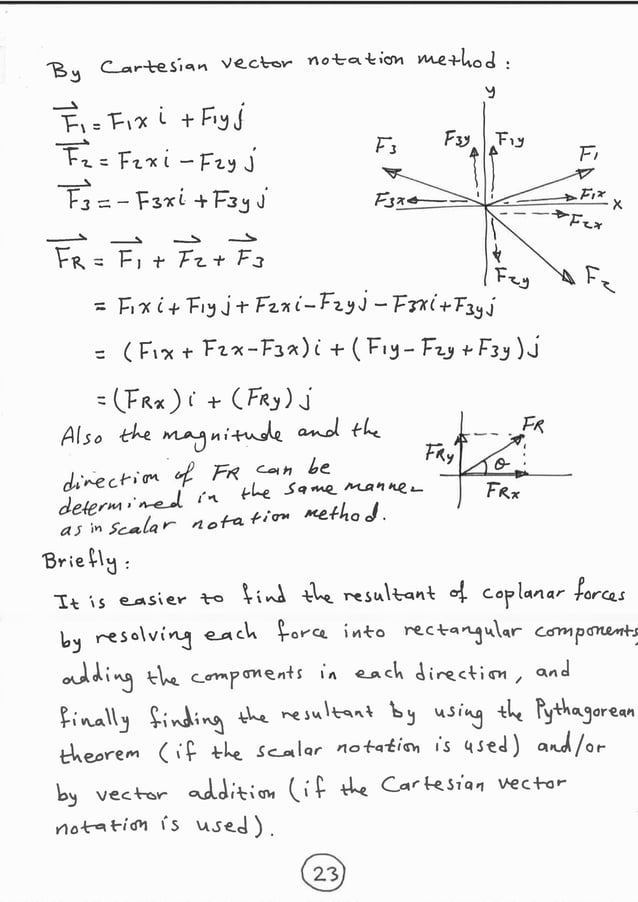 By Cartesian vector notation method :
F₁ = F₁x i + F₁y j
F₂ = F₂x i − F₂y j
F₃ = − F₃x i + F₃y j
F_R = F₁ + F₂ + F₃
= F₁x i + F₁y j + F₂x i − F₂y j − F₃x i + F₃y j
= (F₁x + F₂x − F₃x) i + (F₁y − F₂y + F₃y) j
= (F_Rx) i + (F_Ry) j
y
F₃
F₃y
F₁y
F₁
F₃x
F₁x
x
F₂x
F₂y
F₂
Also the magnitude and the
direction of FR can be
determined in the same manner
as in scalar notation method.
FR
FRy
θ
FRx
Briefly :
It is easier to find the resultant of coplanar forces
by resolving each force into rectangular components,
adding the components in each direction, and
finally finding the resultant by using the Pythagorean
theorem (if the scalar notation is used) and/or
by vector addition (if the Cartesian vector
notation is used).
23